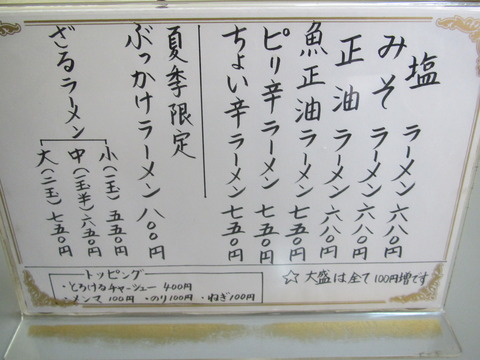 塩ラーメン 六八〇円
みそラーメン 六八〇円
正油ラーメン 六八〇円
魚正油ラーメン 七五〇円
ピリ辛ラーメン 七五〇円
ちょい辛ラーメン 七五〇円
夏季限定
ぶっかけラーメン 八〇〇円
ざるラーメン
小(一玉) 五五〇円
中(一玉半) 六五〇円
大(二玉) 七五〇円
☆ 大盛は全て100円増です
トッピング
・とろけるチャーシュー 400円
・メンマ 100円 ・のり100円 ・ねぎ100円